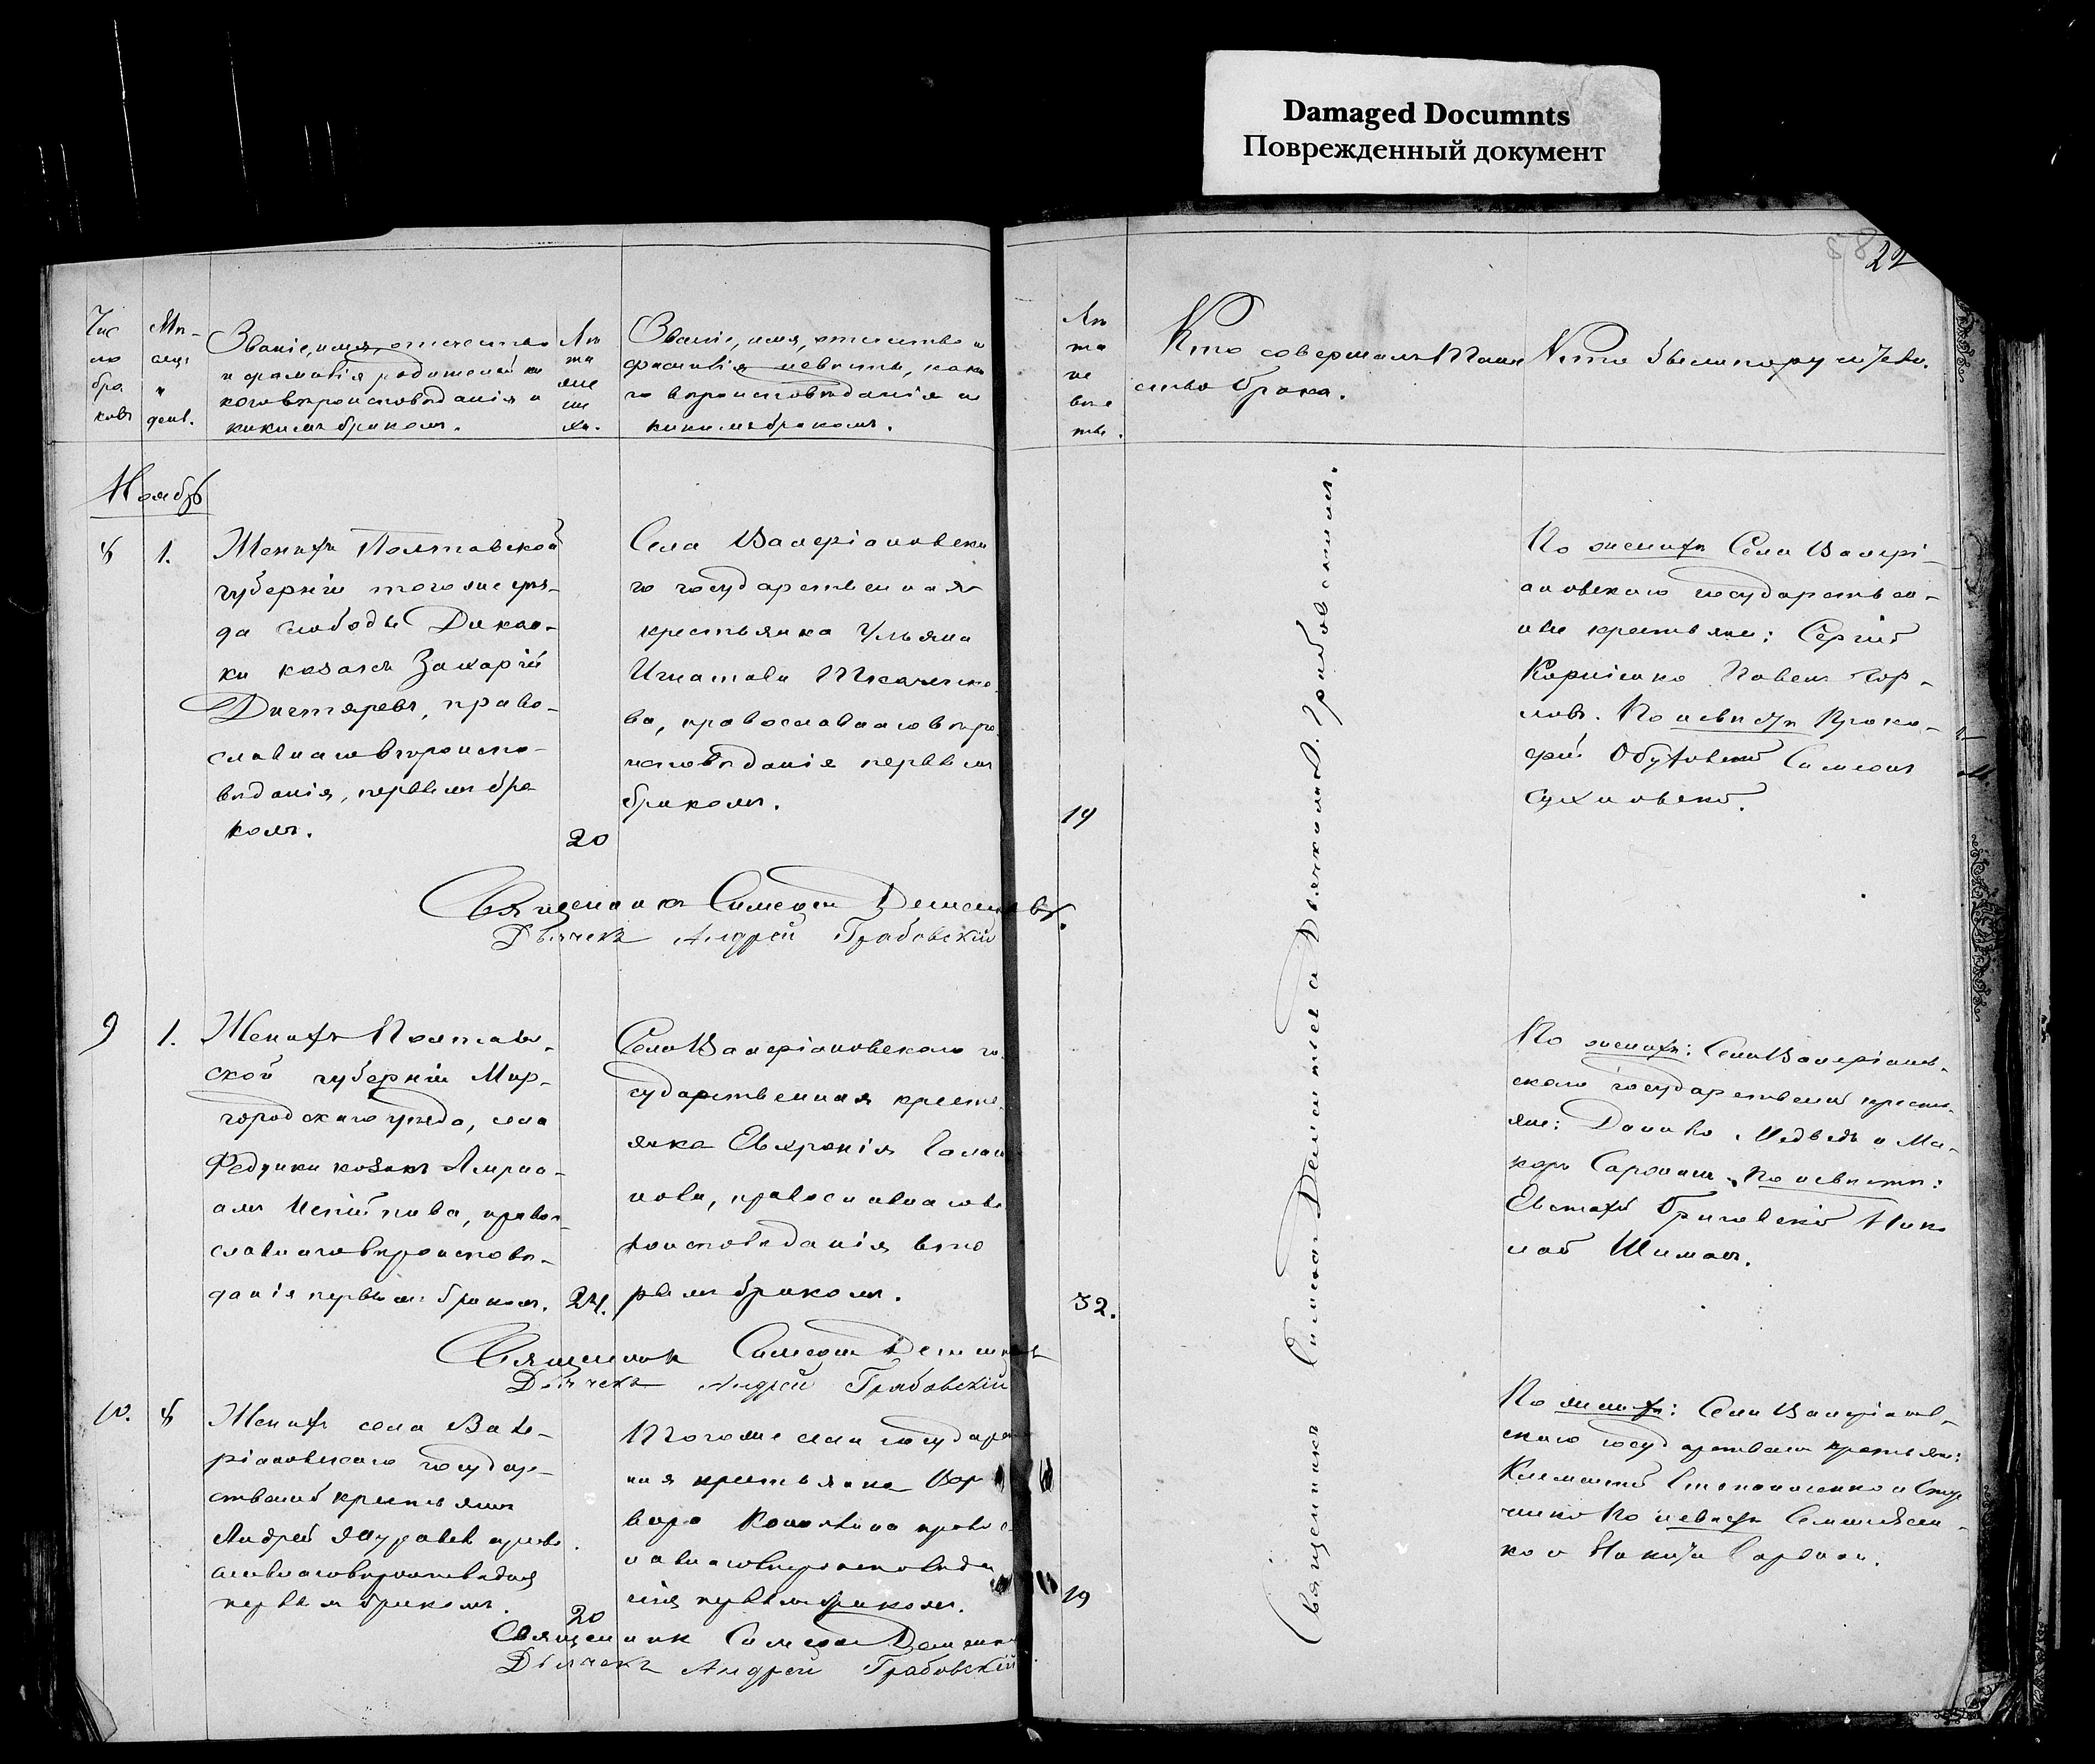 Damaged Documnts
Поврежденный документ
22
Чис
ло
бра
ковъ
Мѣ-
сяцъ
и
день.
Званіе, имя, отчество
и фамилія родителей ка
коговѣроисповѣданія и
какимъ бракомъ.
Лѣ
та
же
ни
ха.
Званіе, имя, отчество и
фамилія невѣсты, како
го вѣроисповѣданія и
какимъ бракомъ.
Лѣ
та
не
вѣс
ты.
Кто совершалъ Таин
ство брака.
Кто были поручители.
Ноябрь
8
1.
Женихъ Полтавской
губерніи тогоже уѣз-
да слободы Дикан-
ки козакъ Захарій
Дистяревъ, право-
славнаго вѣроиспо-
вѣданія, первымъ бра
комъ.
20
Села Валеріановска
го государственная
крестьянка Ульяна
Игнатова Ткаченко-
ва, православнаго вѣро
исповѣданія первымъ
бракомъ.
19
По женихѣ Села Валері-
ановскаго государствен-
ные крестьяне: Сергій
Корніенко Павелъ
По невѣстѣ Проко-
фій Обуховскій Симеонъ
Сухновскій.
Священникъ Симеонъ Дементьевъ.
Дьячекъ Андрей Грабовскій
9
1.
Женихъ Полтав-
ской губерніи Мир-
городскаго уѣзда, села
Федунки козакъ
право-
славнаго вѣроисповѣ-
данія первымъ бракомъ.
24.
Села Валеріановскаго го-
сударственная крестья
янка Евфронія
нова, православнаго вѣ
роисповѣданія вто
рымъ бракомъ.
32.
По женихѣ: Села Валеріанов-
скаго государственные крестья-
яне: Данило Медведь и Ма-
каръ По невѣстѣ:
Евстафій Ник
лай Шиманъ.
Священник Симеонъ Дементьевъ
Дьячекъ Андрей Грабовскій
10.
8
Женихъ села Вале-
ріановскаго государ-
ственный крестьянинъ
Андрей Журавель право
славнаго вѣроисповѣданія
первымъ бракомъ.
20
Тогоже села государст
ная крестьянка Вар
вара православ
наго вѣроисповѣда
нія первымъ бракомъ.
19
По женихѣ: Села Валеріанов-
скаго государственные крестьяне:
Климентій Степаненко и
По невѣстѣ
ко и Никита
Священник Симеонъ Дементьевъ
Дьячекъ Андрей Грабовскій
Священникъ Симеонъ Дементьевъ и Дьячкомъ А. Грабовскимъ.